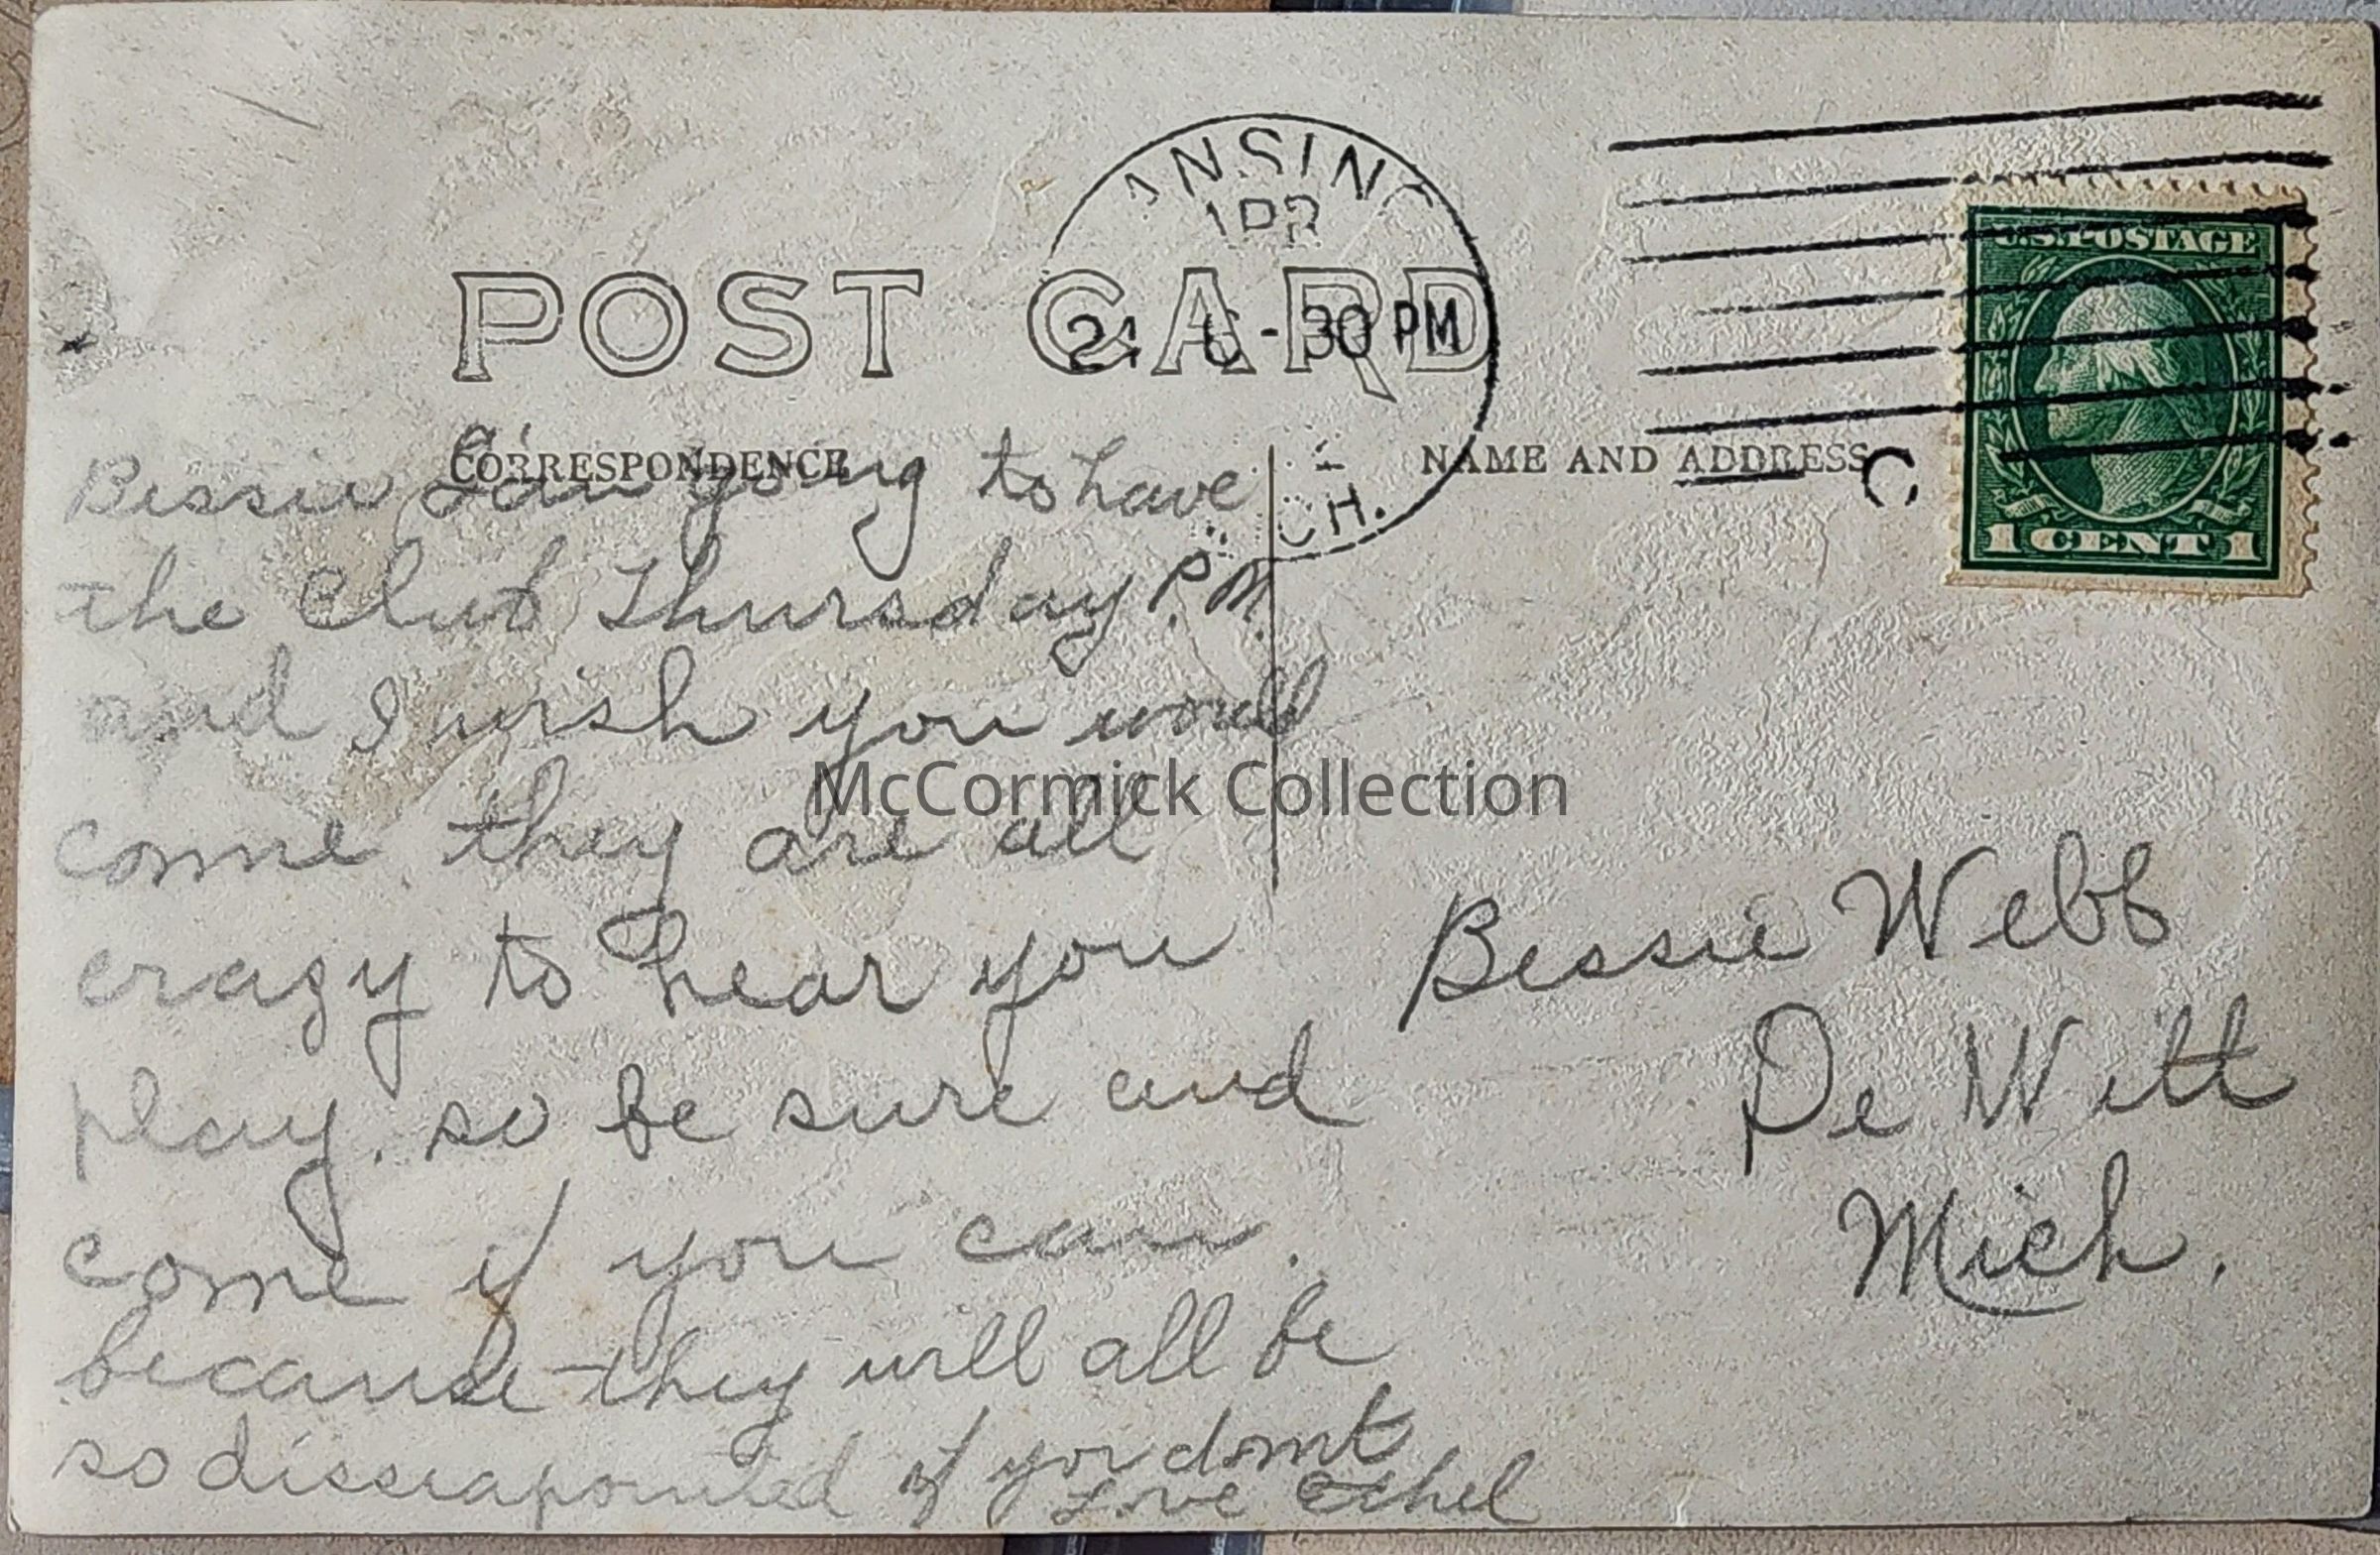 ANSING
APR
POST CARD
6-30 PM
U.S. POSTAGE
1 CENT 1
CH.
CORRESPONDENCE
NAME AND ADDRESS
Bessie I am going to have
the Club Thursday P.M.
and I wish you would
come. they are all
crazy to hear you
play. so be sure and
come if you can.
because they will all be
so disseapointed if you don't
Love Ethel
McCormick Collection
Bessie Webb
De Witt
Mich.